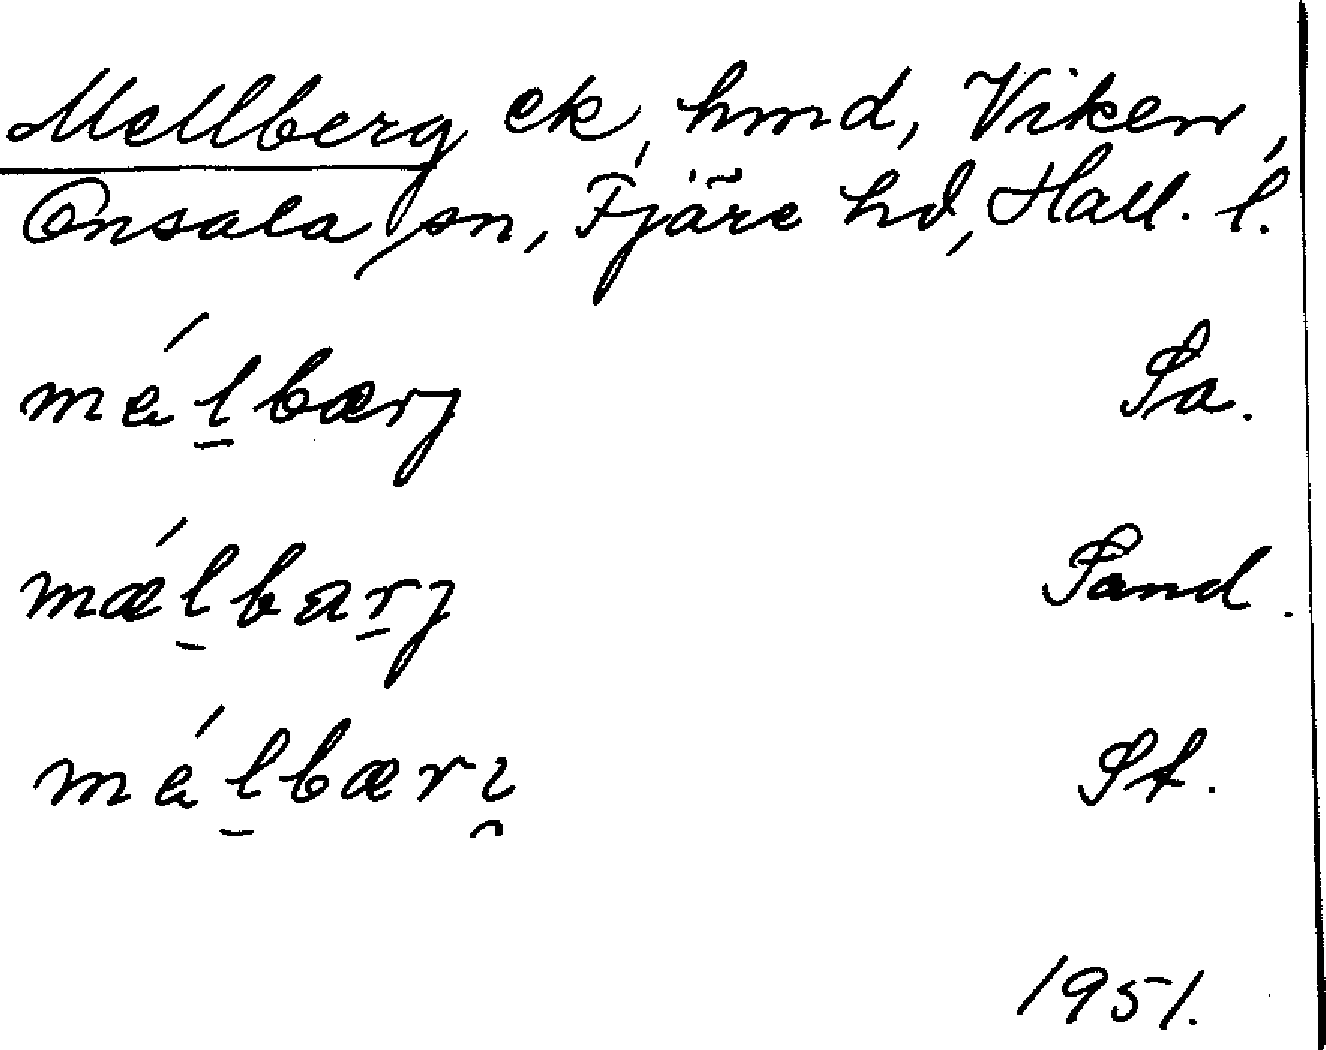 Mellberg ek, hmd, Viken,
Onsala sn, Fjäre hd, Hall. l.
mél̠bærj Sa.
mǽl̠bar̠j Sand.
mél̠bæri̯ St.
1951.